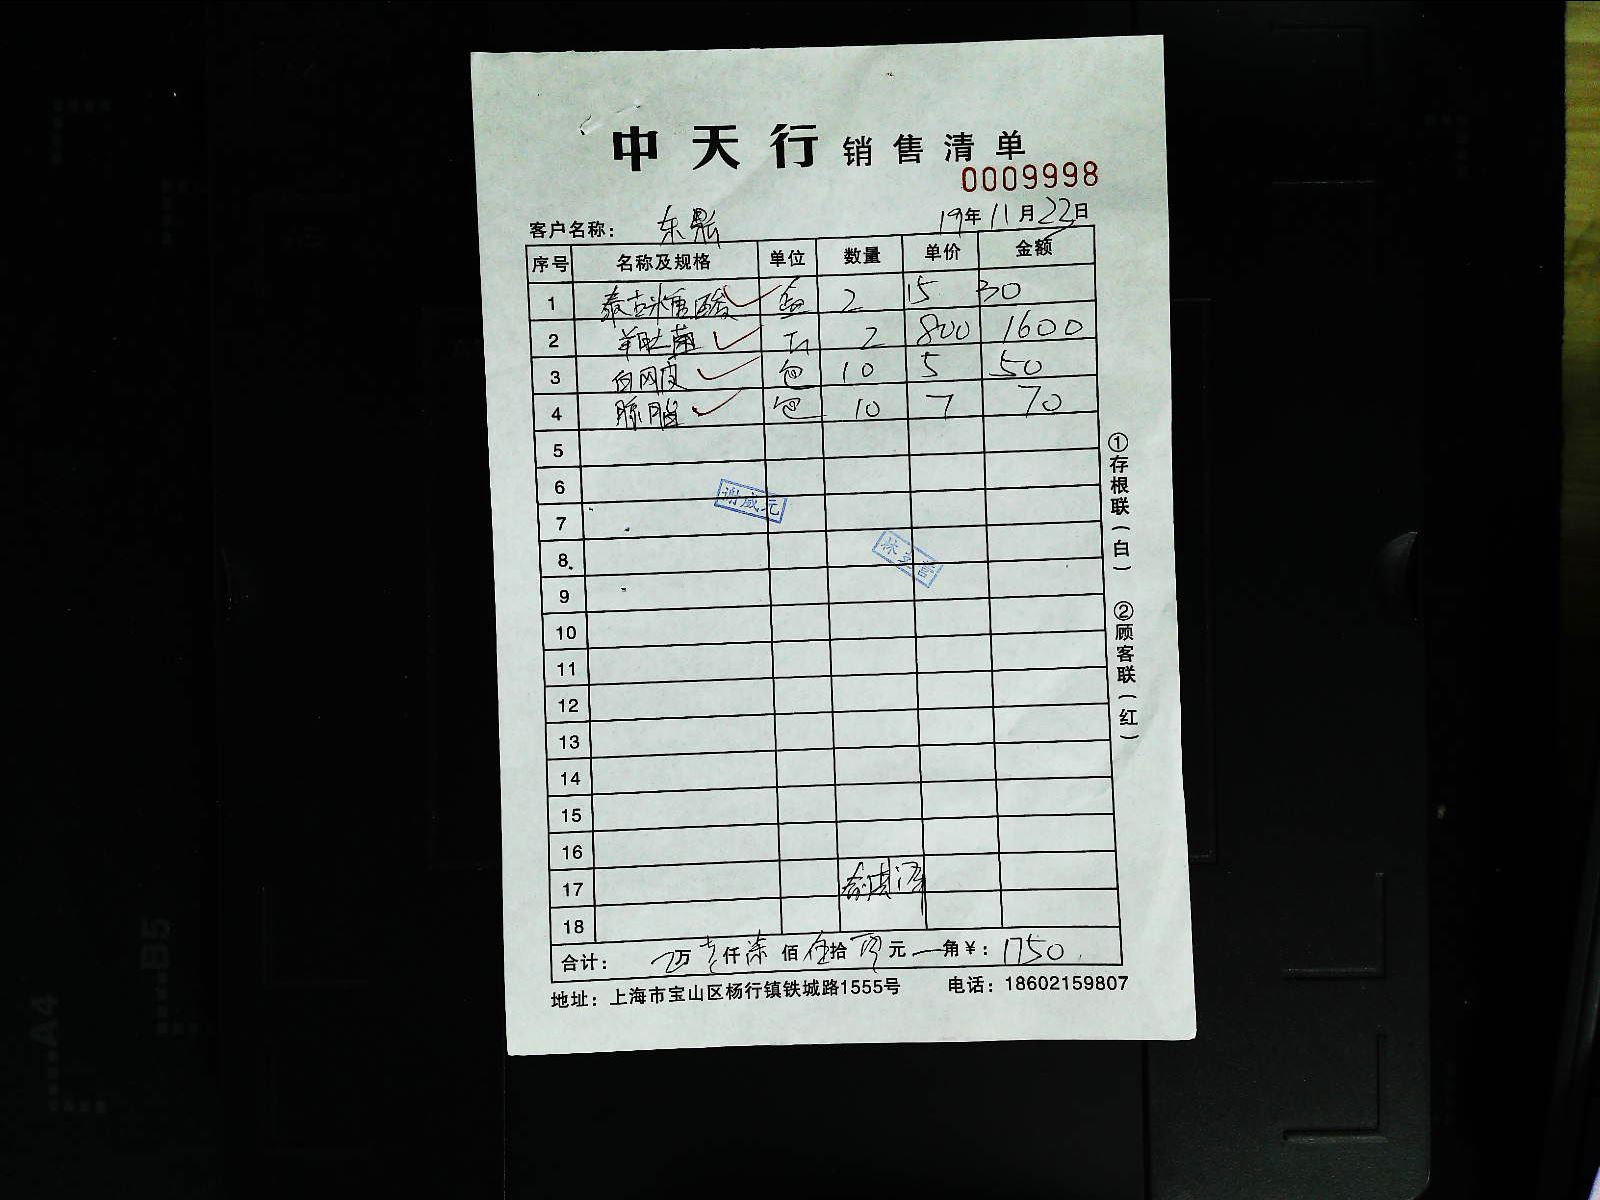 中天行销售清单
0009998
客户名称: 东鼎 19年11月22日
序号 名称及规格 单位 数量 单价 金额
1 泰古米唐酸 盒 2 15 30
2 羊肚菌 斤 2 800 1600
3 白网皮 包 10 5 50
4 包 10 7 70
5
6
谢威元
7
8
9
10
11
12
13
14
15
16
17
18
合计: 万壹仟柒佰伍拾零元一角¥: 1750
地址: 上海市宝山区杨行镇铁城路1555号 电话: 18602159807
①存根联(白) ②顾客联(红)